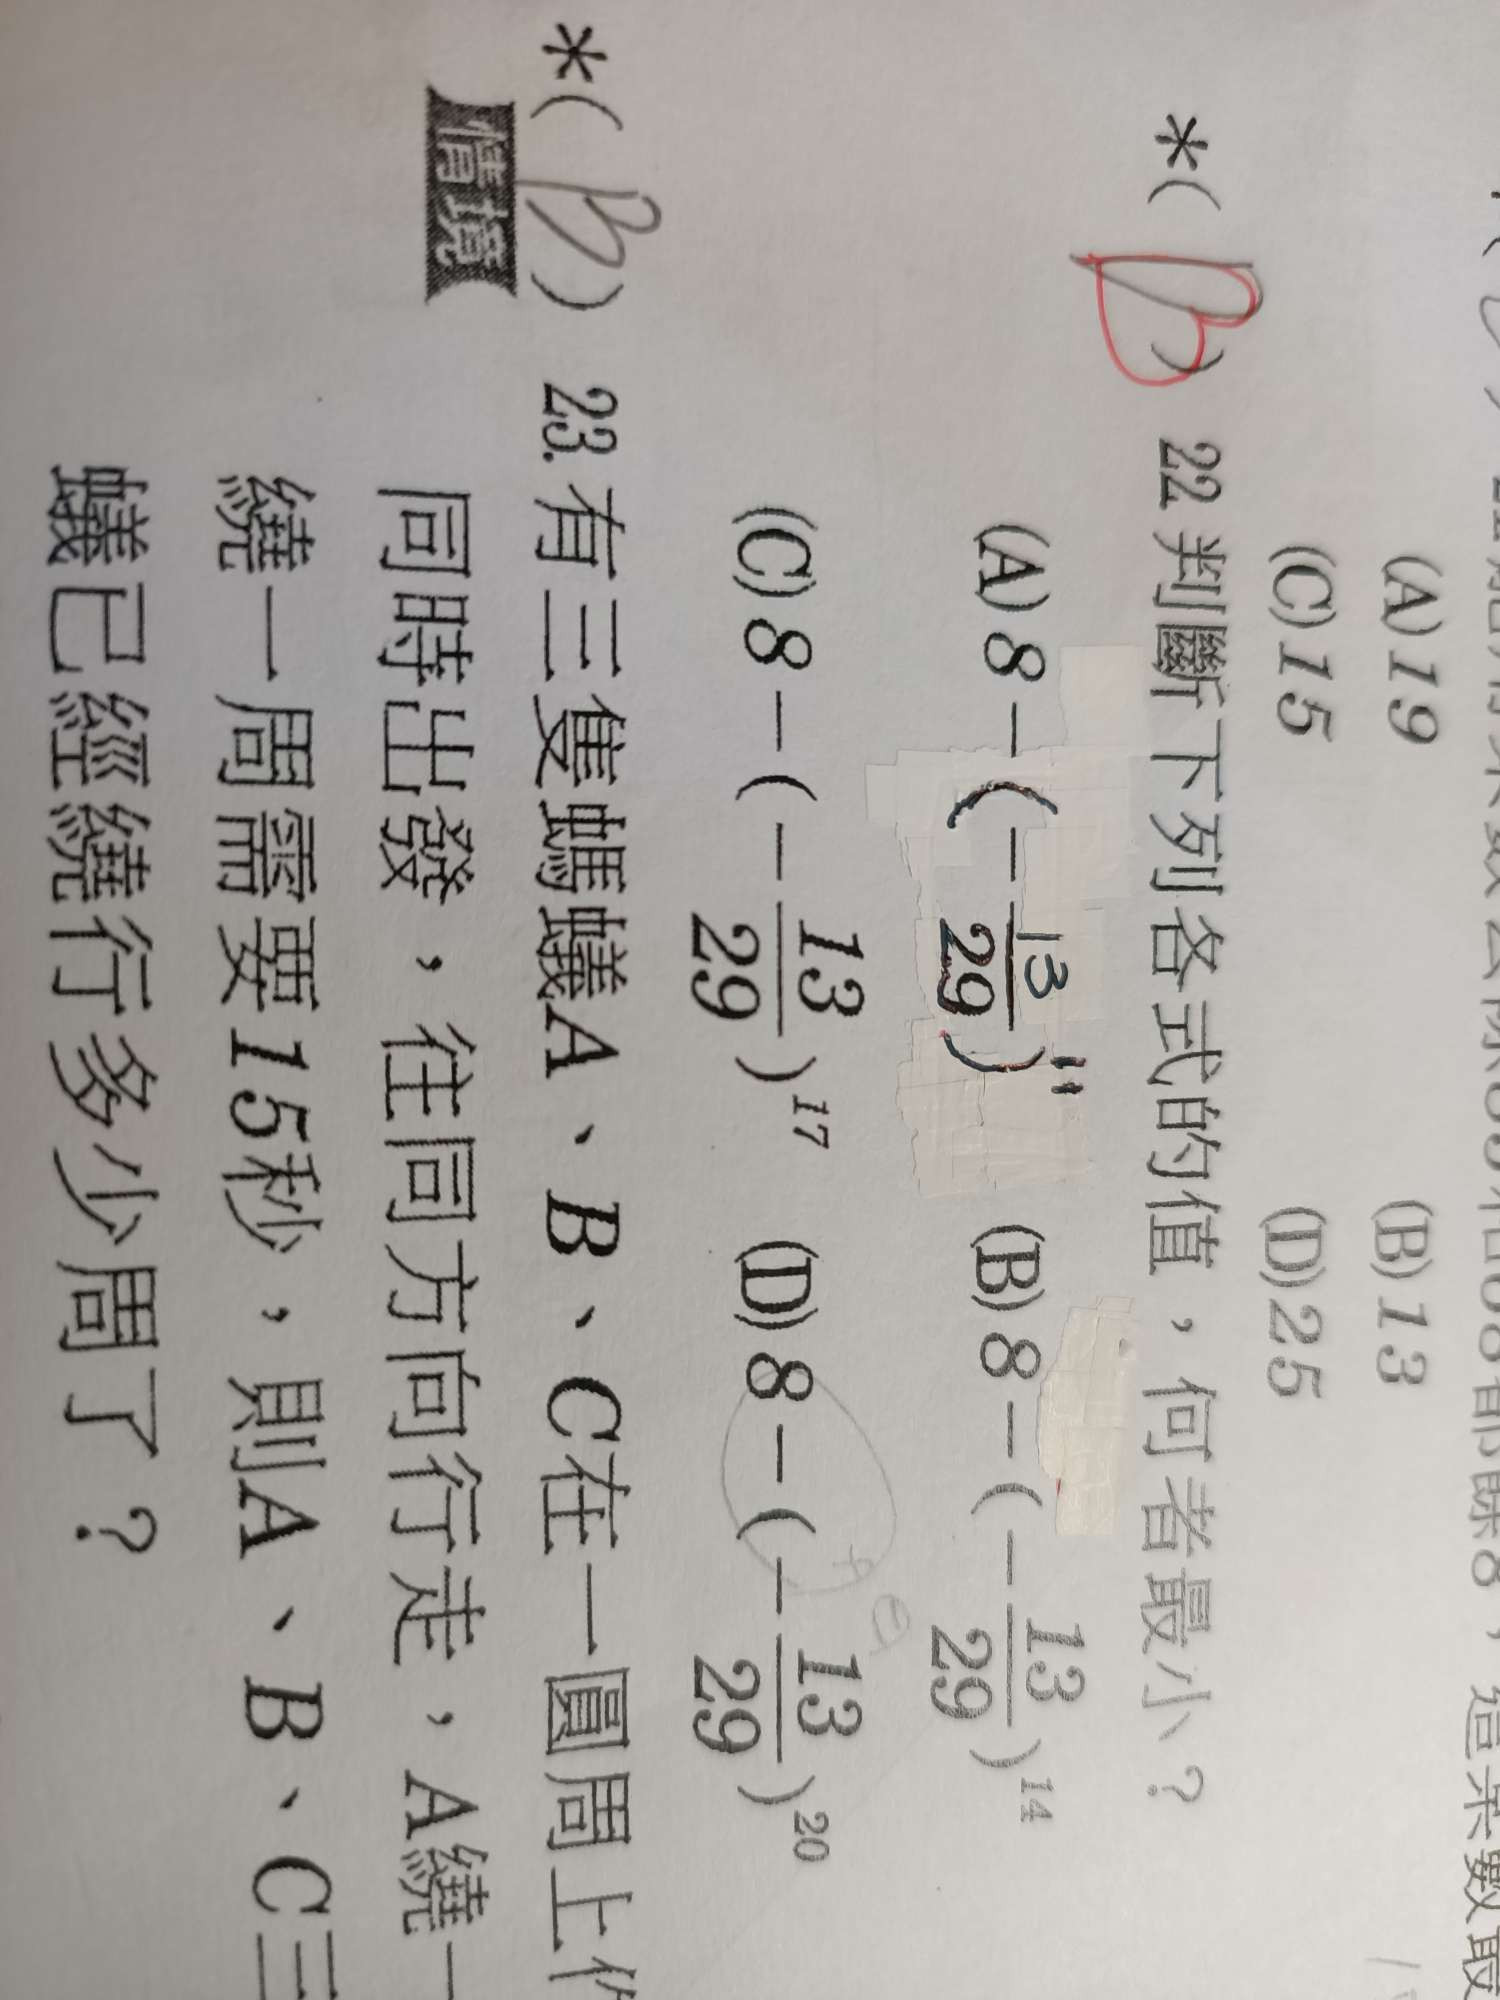 (A)19 (B)13
(C)15 (D)25
*(B) 22 判斷下列各式的值，何者最小？
(A) 8－(－13/29)^11 (B) 8－(－13/29)^14
(C) 8－(－13/29)^17 (D) 8－(－13/29)^20
*(B) 23. 有三隻螞蟻A、B、C在一圓周上
情境 同時出發，往同方向行走，A繞一
繞一周需要15秒，則A、B、C三
蟻已經繞行多少周了？